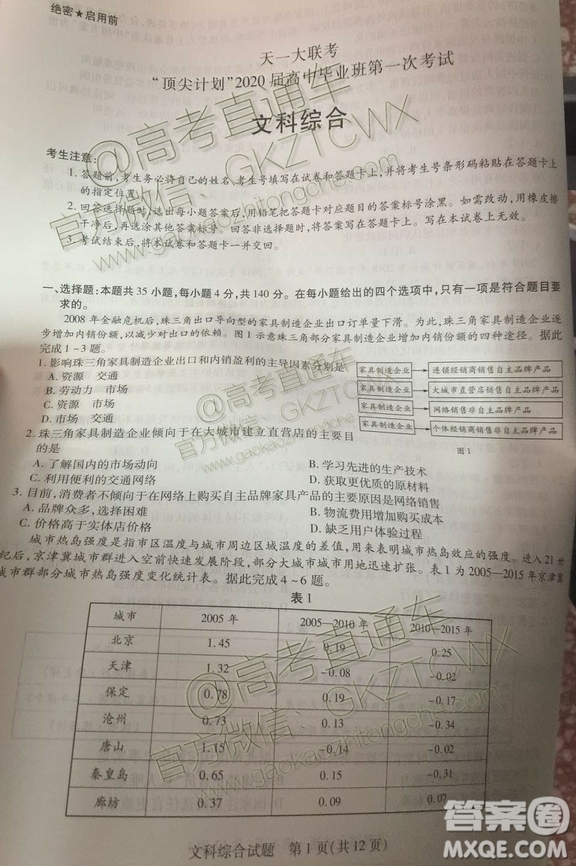 绝密★启用前
天一大联考
“顶尖计划”2020届高中毕业班第一次考试
文科综合
考生注意:
1.答题前,考生务必将自己的姓名、考生号填写在试卷和答题卡上,并将考生号条形码粘贴在答题卡上
的指定位置。
2.回答选择题时,选出每小题答案后,用铅笔把答题卡对应题目的答案标号涂黑。如需改动,用橡皮擦
干净后,再选涂其他答案标号。回答非选择题时,将答案写在答题卡上。写在本试卷上无效。
3.考试结束后,将本试卷和答题卡一并交回。
一、选择题:本题共35小题,每小题4分,共140分。在每小题给出的四个选项中,只有一项是符合题目要
求的。
2008年金融危机后,珠三角出口导向型的家具制造企业出口订单量下滑。为此,珠三角家具制造企业逐
步增加内销份额,以减少对出口的依赖。图1示意珠三角部分家具制造企业增加内销份额的四种途径。据此
完成1~3题。
1.影响珠三角家具制造企业出口和内销盈利的主导因素分别是
A.资源 交通
B.劳动力 市场
C.资源 市场
D.市场 交通
家具制造企业 连锁经销商销售自主品牌产品
家具制造企业 大城市直营店销售自主品牌产品
家具制造企业 网络销售非自主品牌产品
家具制造企业 个体经销商销售非自主品牌产品
图1
2.珠三角家具制造企业倾向于在大城市建立直营店的主要目
的是
A.了解国内的市场动向 B.学习先进的生产技术
C.利用便利的交通网络 D.获取更优质的原材料
3.目前,消费者不倾向于在网络上购买自主品牌家具产品的主要原因是网络销售
A.品牌众多,选择困难 B.物流费用增加购买成本
C.价格高于实体店价价 D.缺乏用户体验过程
城市热岛强度是指市区温度与城市周边区域温度的差值,用来表明城市热岛效应的强度。进入21世
纪后,京津冀城市群进入空前快速发展阶段,部分大城市城市用地迅速扩张。表1为2005—2015年京津冀
城市群部分城市热岛强度变化统计表。据此完成4~6题。
表1
城市 2005年 2005—2010年 2010—2015年
北京 1.45 0.19 0.25
天津 1.32 -0.08 -0.02
保定 0.78 0.19 -0.17
沧州 0.73 0.13 -0.34
唐山 1.15 -0.14 -0.02
秦皇岛 0.65 0.15 -0.31
廊坊 0.37 0.09 0.07
文科综合试题 第1页(共12页)
@高考直通车
官方微信:GKZTCWX
www.gaokaozhitongche.com
@高考直通车
官方微信:GKZTCWX
www.gaokaozhitongche.com
答案圈
MXQE.COM